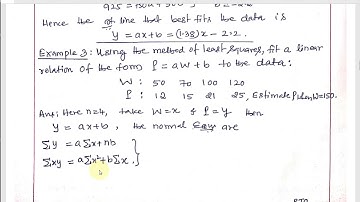 925 = 150a + 300
Hence the line that best fits the data is
y = ax+b = (1.38)x - 2.2.
Example 3: Using the method of least squares, fit a linear
relation of the form P = aW + b to the data:
W: 50 70 100 120
P: 12 15 21 25, Estimate P when W=150.
Ans: Here n=4, take W=x & P=y then
y = ax+b, the normal Eqns are
Σy = aΣx+nb
Σxy = aΣx²+bΣx.